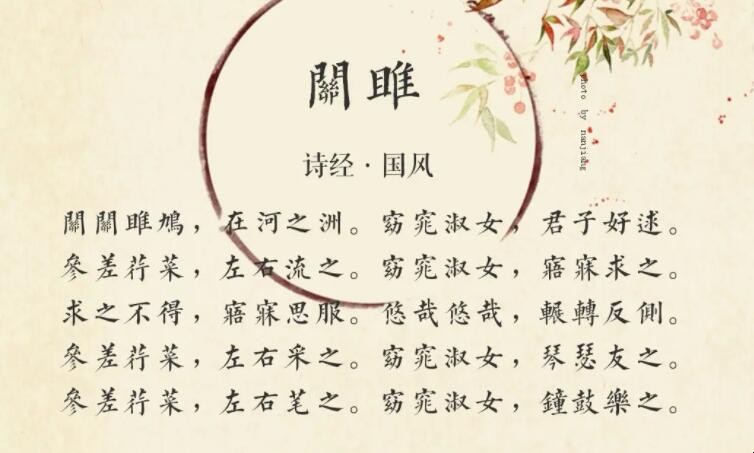 關雎
诗经·国风
關關雎鳩，在河之洲。窈窕淑女，君子好逑。
參差荇菜，左右流之。窈窕淑女，寤寐求之。
求之不得，寤寐思服。悠哉悠哉，輾轉反側。
參差荇菜，左右采之。窈窕淑女，琴瑟友之。
參差荇菜，左右笔之。窈窕淑女，鐘鼓樂之。
photo by nanjiang